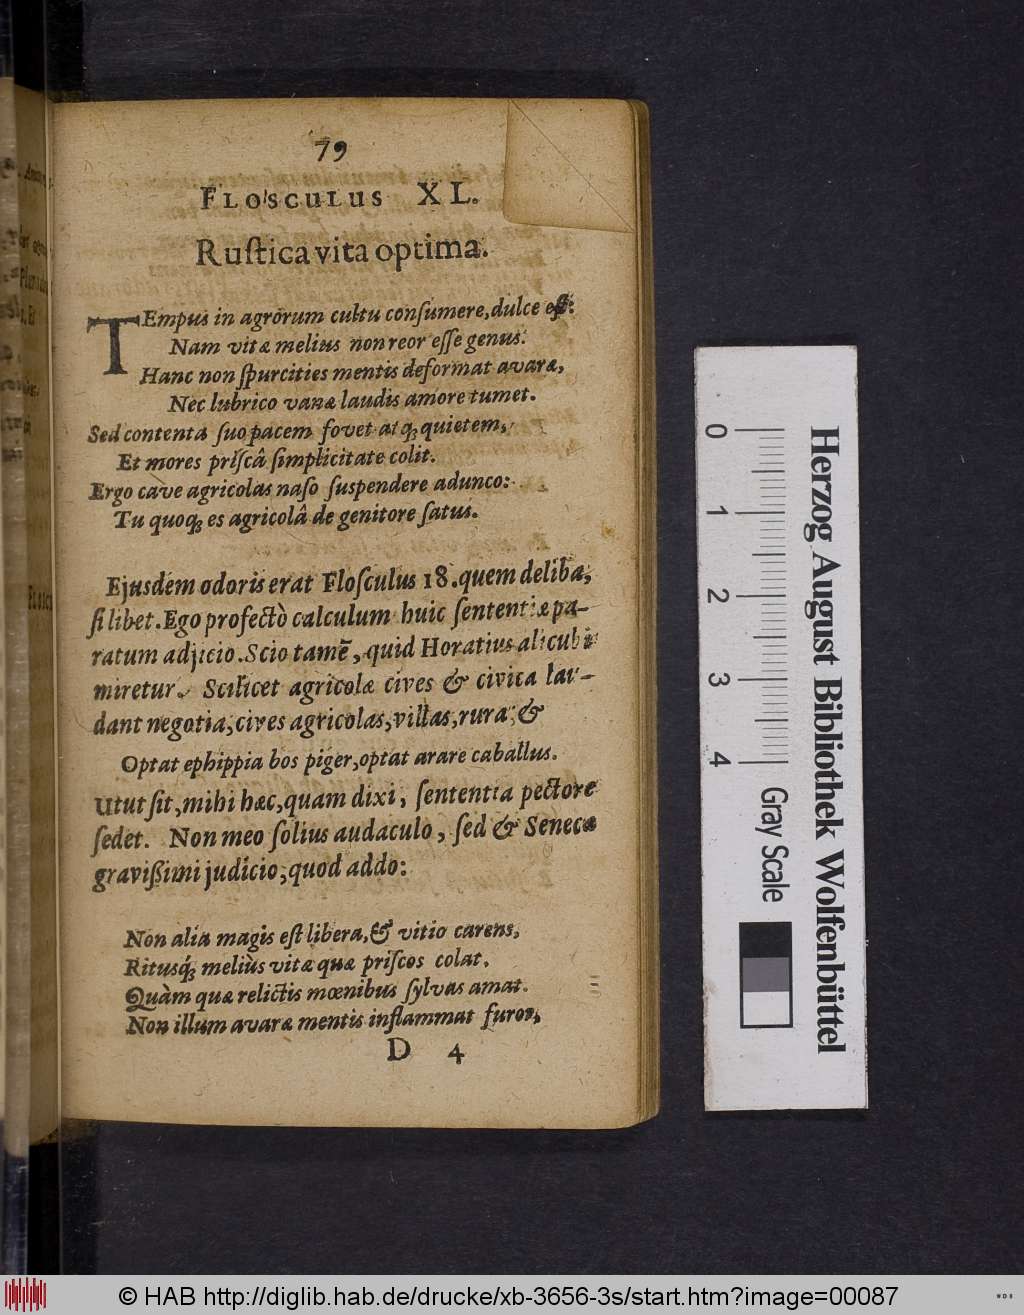 79
FLOSCULUS XL.
Ruſtica vita optima.
TEmpus in agrorum cultu conſumere, dulce eſt:
Nam vitæ melius non reor eſſe genus.
Hanc non ſpurcities mentis deformat avaræ,
Nec lubrico vanæ laudis amore tumet.
Sed contenta ſuo pacem fovet atq; quietem,
Et mores priſcâ ſimplicitate colit.
Ergo cave agricolas naſo ſuspendere adunco:
Tu quoq; es agricolâ de genitore ſatus.
Ejusdem odoris erat Floſculus 18. quem deliba,
ſi libet. Ego profectò calculum huic ſententiæ pa-
ratum adjicio. Scio tamẽ, quid Horatius alicubi
miretur. Scilicet agricolæ cives & civica lau-
dant negotia, cives agricolas, villas, rura, &
Optat ephippia bos piger, optat arare caballus.
Utut ſit, mihi hæc, quam dixi, ſententia pectore
ſedet. Non meo ſolius audaculo, ſed & Senecæ
gravißimi judicio, quod addo:
Non alia magis eſt libera, & vitio carens,
Ritusq́; meliùs vitæ quæ priſcos colat.
Quàm quæ relictis mœnibus ſylvas amat.
Non illum avaræ mentis inflammat furor,
D 4
0 1 2 3 4
Gray Scale
Herzog August Bibliothek Wolfenbüttel
© HAB http://diglib.hab.de/drucke/xb-3656-3s/start.htm?image=00087